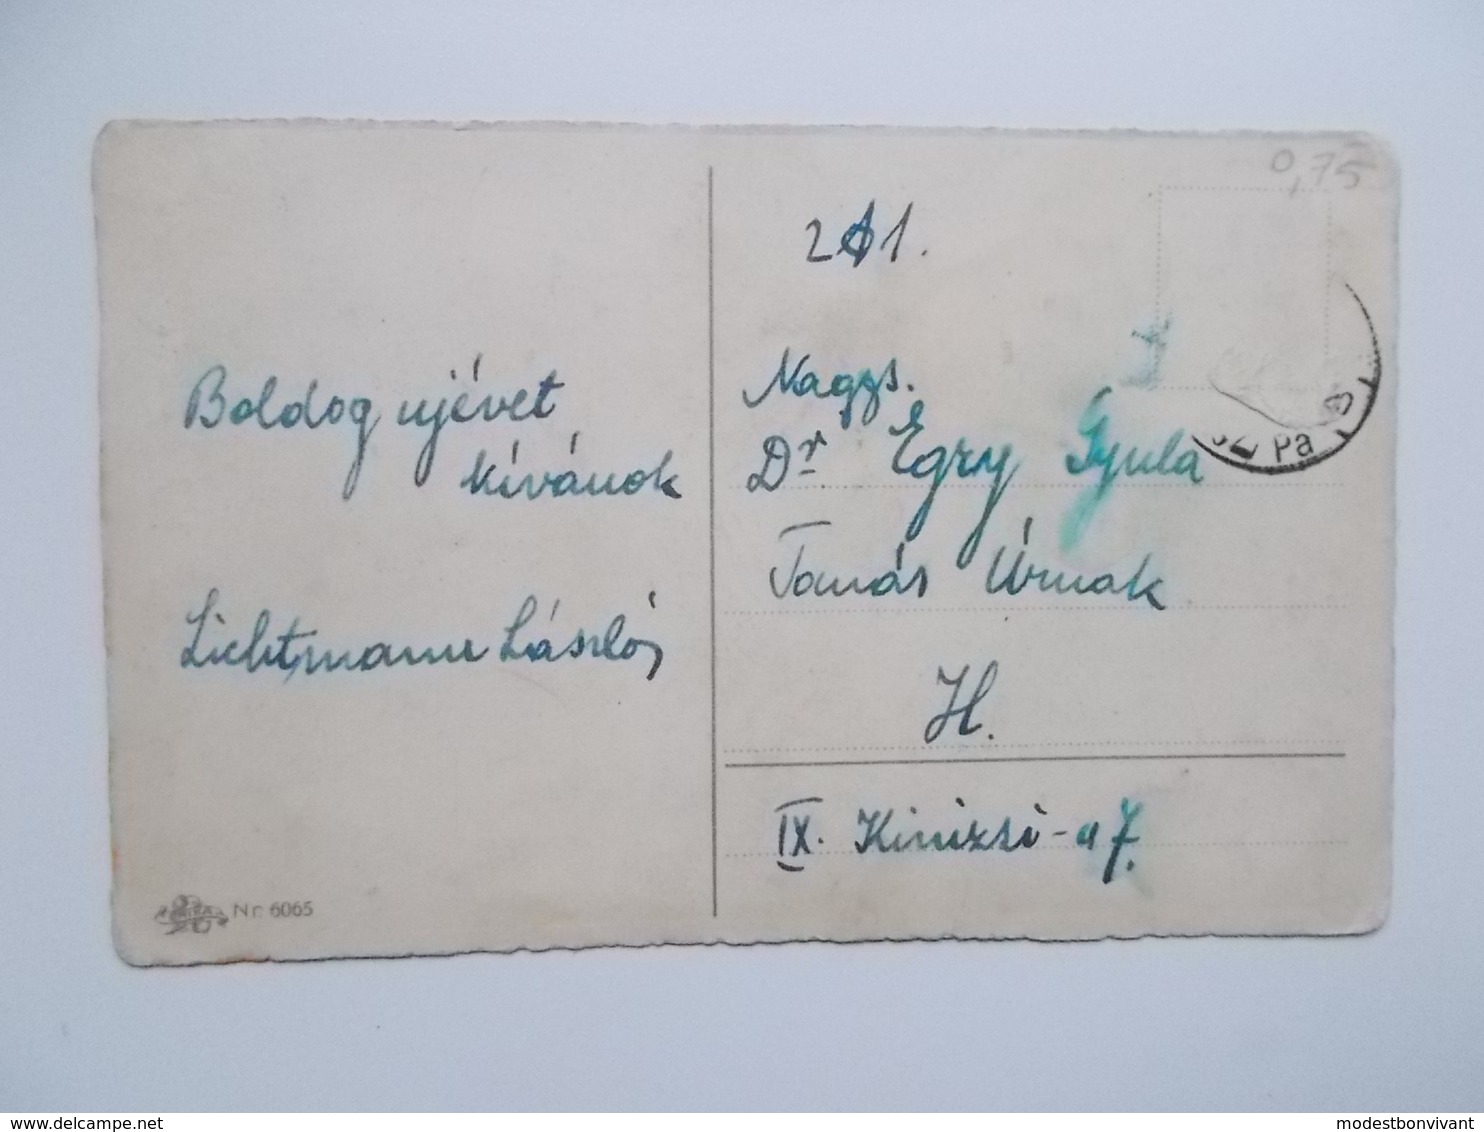 Boldog ujévet
kívánok
Lichtmann László
Nr. 6065
0,75
Nagys.
Dr Egry Gyula
Tanár Úrnak
H.
IX. Kinizsi-u 7.
Pa
www.delcampe.net
modestbonvivant